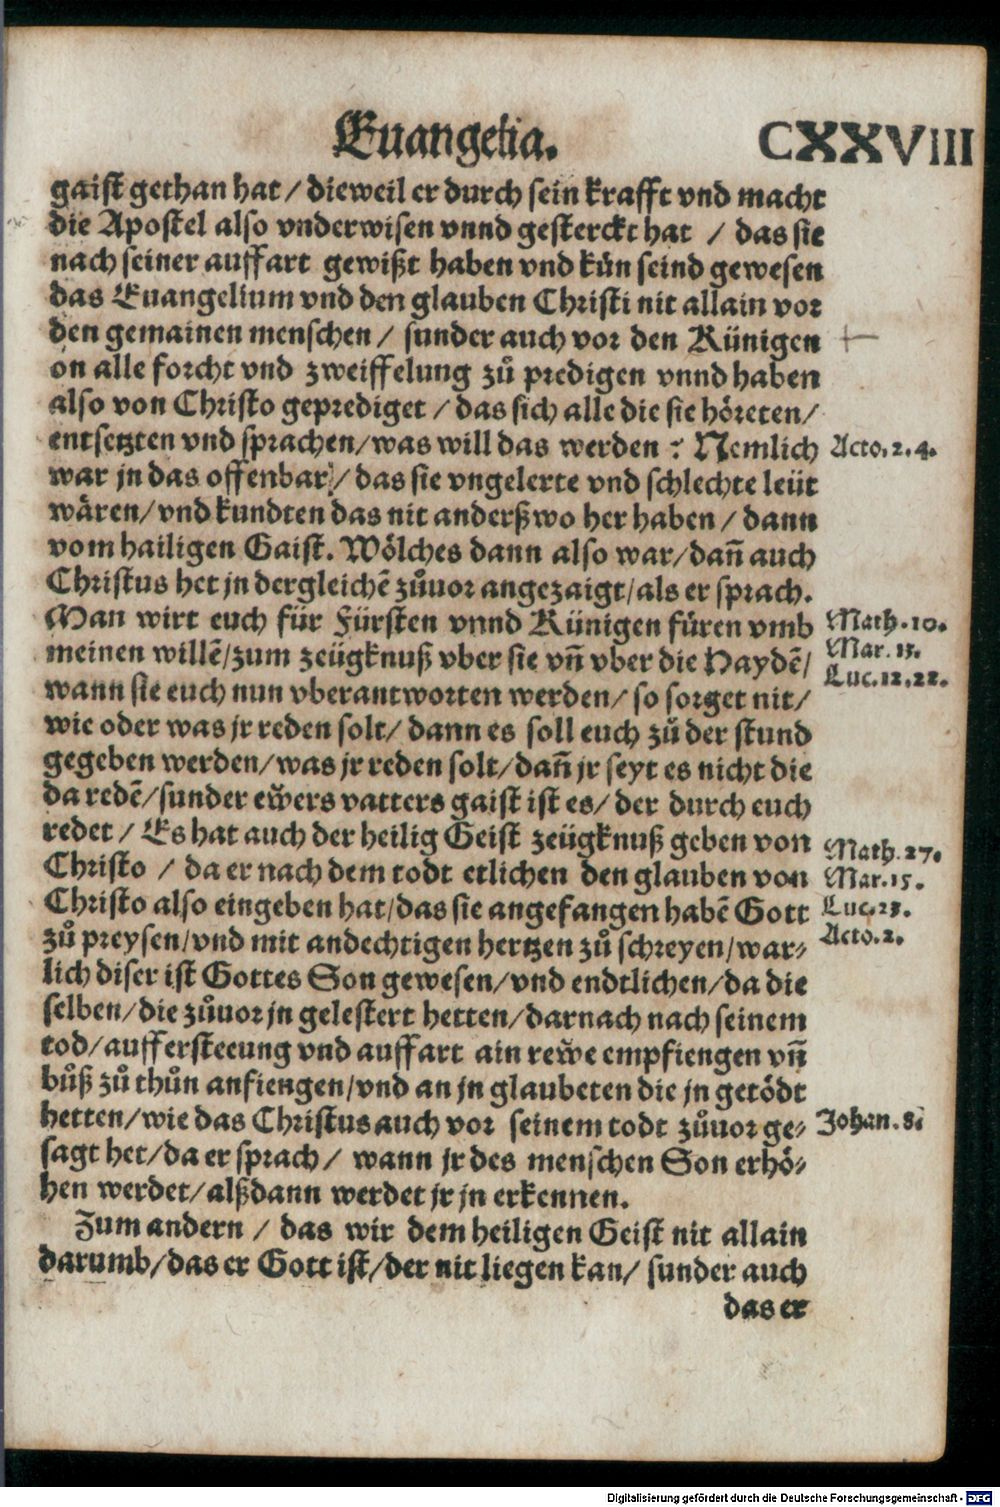 Euangelia. CXXVIII
gaist gethan hat / dieweil er durch sein krafft vnd macht
die Apostel also vnderwisen vnnd gesterckt hat / das sie
nach seiner auffart gewißt haben vnd kün seind gewesen
das Euangelium vnd den glauben Christi nit allain vor
den gemainen menschen / sunder auch vor den Künigen
on alle forcht vnd zweiffelung zů predigen vnnd haben
also von Christo geprediget / das sich alle die sie höreten /
entsetzten vnd sprachen / was will das werden ? Nemlich
Acto. 2. 4.
war jn das offenbar / das sie vngelerte vnd schlechte leüt
wären / vnd kundten das nit anderßwo her haben / dann
vom hailigen Gaist. Wölches dann also war / dañ auch
Christus het jn dergleichẽ zůuor angezaigt / als er sprach.
Man wirt euch für Fürsten vnnd Künigen füren vmb
Math. 10.
meinen willẽ / zum zeügknuß vber sie vñ vber die Haydẽ /
Mar. 13.
Luc. 12. 22.
wann sie euch nun vberantworten werden / so sorget nit /
wie oder was jr reden solt / dann es soll euch zů der stund
gegeben werden / was jr reden solt / dañ jr seyt es nicht die
da redẽ / sunder ewers vatters gaist ist es / der durch euch
redet / Es hat auch der heilig Geist zeügknuß geben von
Math. 27.
Christo / da er nach dem todt etlichen den glauben von
Mar. 15.
Christo also eingeben hat / das sie angefangen habẽ Gott
Luc. 23.
zů preysen / vnd mit andechtigen hertzen zů schreyen / war⸗
Acto. 2.
lich diser ist Gottes Son gewesen / vnd endtlichen / da die
selben / die zůuor jn gelestert hetten / darnach nach seinem
tod / auffersteeung vnd auffart ain rewe empfiengen vñ
bůß zů thůn anfiengen / vnd an jn glaubeten die jn getödt
hetten / wie das Christus auch vor seinem todt zůuor ge⸗
Johan. 8.
sagt het / da er sprach / wann jr des menschen Son erhö⸗
hen werdet / alßdann werdet jr jn erkennen.
Zum andern / das wir dem heiligen Geist nit allain
darumb / das er Gott ist / der nit liegen kan / sunder auch
das er
Digitalisierung gefördert durch die Deutsche Forschungsgemeinschaft - DFG